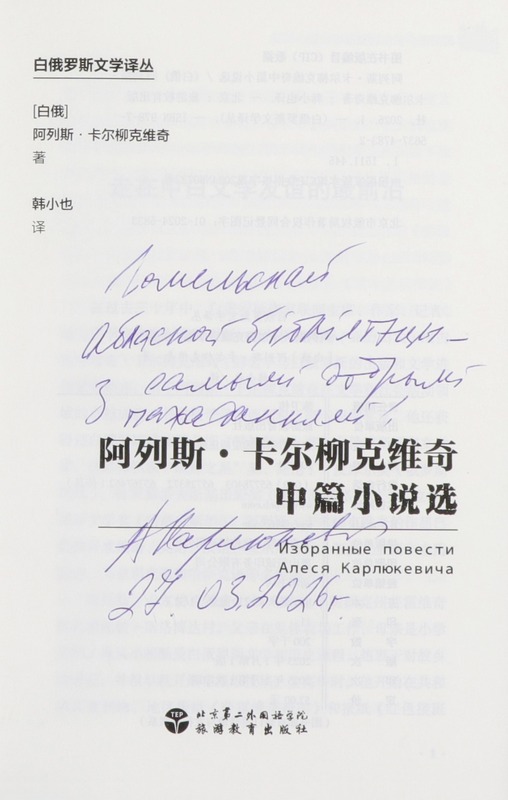 白俄罗斯文学译丛
[白俄]
阿列斯·卡尔柳克维奇
著
韩小也
译
Гомельскай
абласной бібліятэцы –
з самымі добрымі
пажаданнямі!
阿列斯·卡尔柳克维奇
中篇小说选
А Карлюкевіч
Избранные повести
Алеся Карлюкевича
27.03.2026г.
TEP
北京第二外国语学院
旅游教育出版社